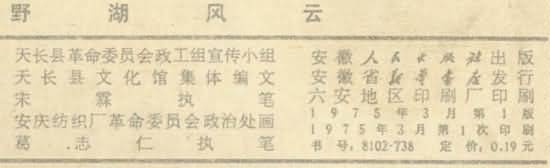 野湖风云
天长县革命委员会政工组宣传小组
天长县文化馆集体编文
宋霖执笔
安庆纺织厂革命委员会政治处画
葛志仁执笔
安徽人民出版社出版
安徽省新华书店发行
六安地区印刷厂印刷
1975年3月第1版
1975年3月第1次印刷
书号：8102-738 定价：0.19元